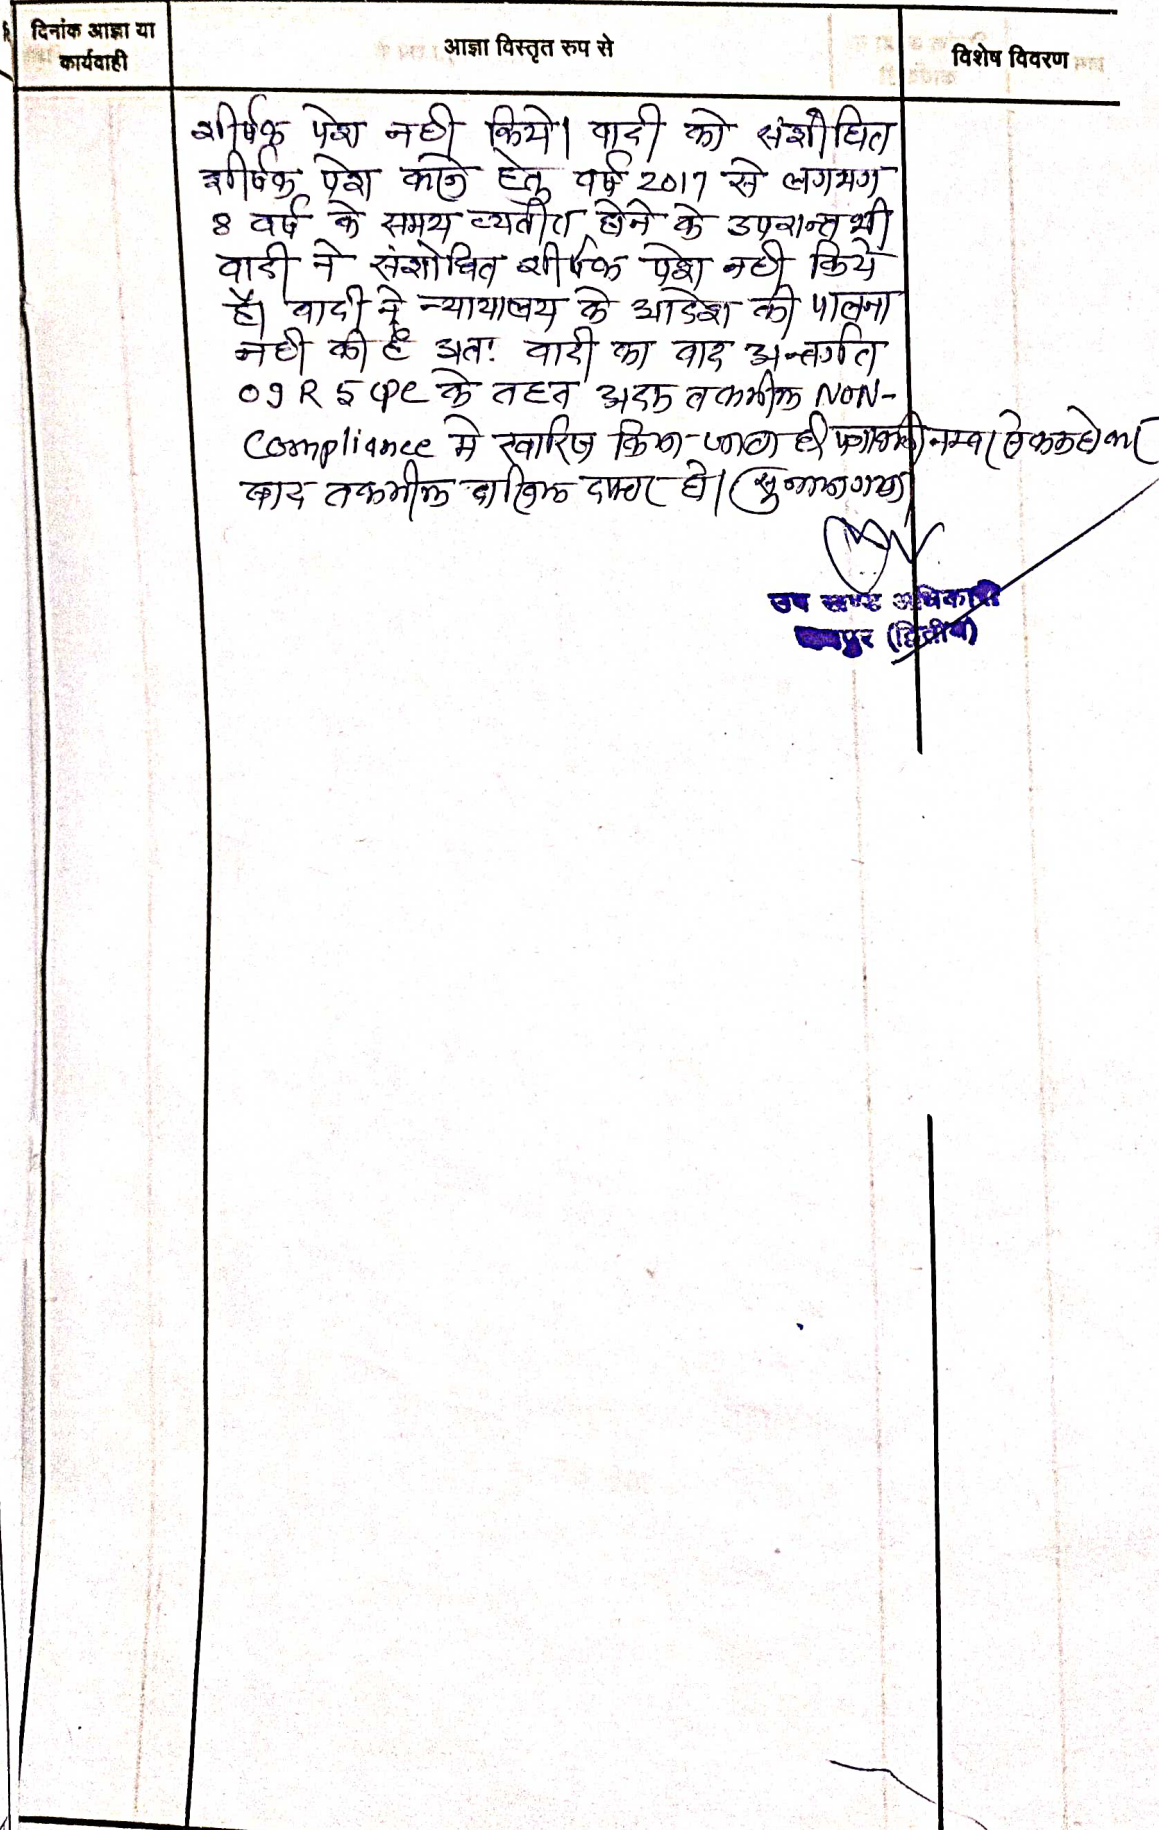 दिनांक आज्ञा या
कार्यवाही
आज्ञा विस्तृत रुप से
विशेष विवरण
शीर्षक पेश नही किये। वादी को संशोधित
शीर्षक पेश करने हेतु वर्ष 2017 से लगभग
8 वर्ष के समय व्यतीत होने के उपरान्त भी
वादी ने संशोधित शीर्षक पेश नही किये
है। वादी ने न्यायालय के आदेश की पालना
नही की है अतः वादी का वाद अन्तर्गत
O9 R 5 CPC के तहत अदम तकमील NON-
Compliance मे खारिज किया जाता है। पत्रावली नम्बर से कम होकर
बाद तकमील दाखिल दफ्तर हो। सुनाया गया
उप खण्ड अधिकारी
(द्वितीय)